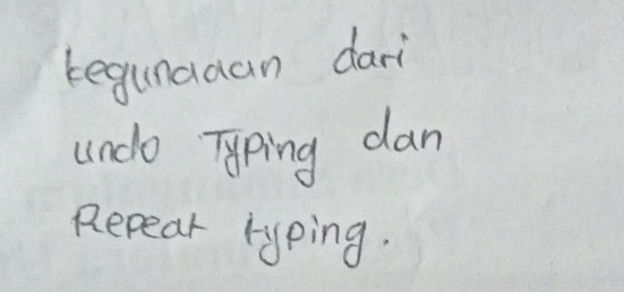 kegunaaan dari
undo Typing dan
Repeat typing.